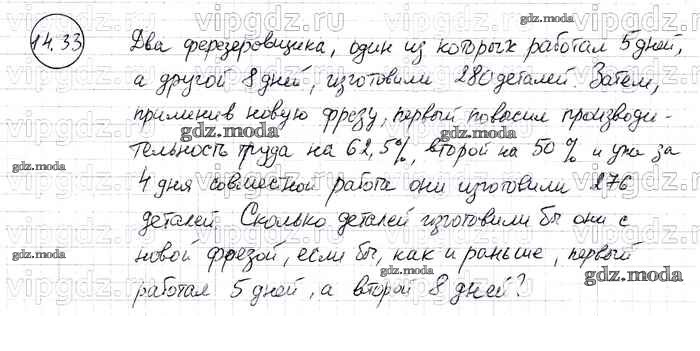 14.33
Два ферезеровщика, один из которых работал 5 дней,
а другой 8 дней, изготовили 280 деталей. Затем,
применив новую фрезу, первый повысил производи-
тельность труда на 62,5%, второй на 50% и уже за
4 дня совместной работа они изготовили 276
деталей. Сколько деталей изготовили бы они с
новой фрезой, если бы, как и раньше, первый
работал 5 дней, а второй 8 дней?
gdz.moda
gdz.moda
gdz.moda
gdz.moda
gdz.moda
gdz.moda
gdz.moda
gdz.moda